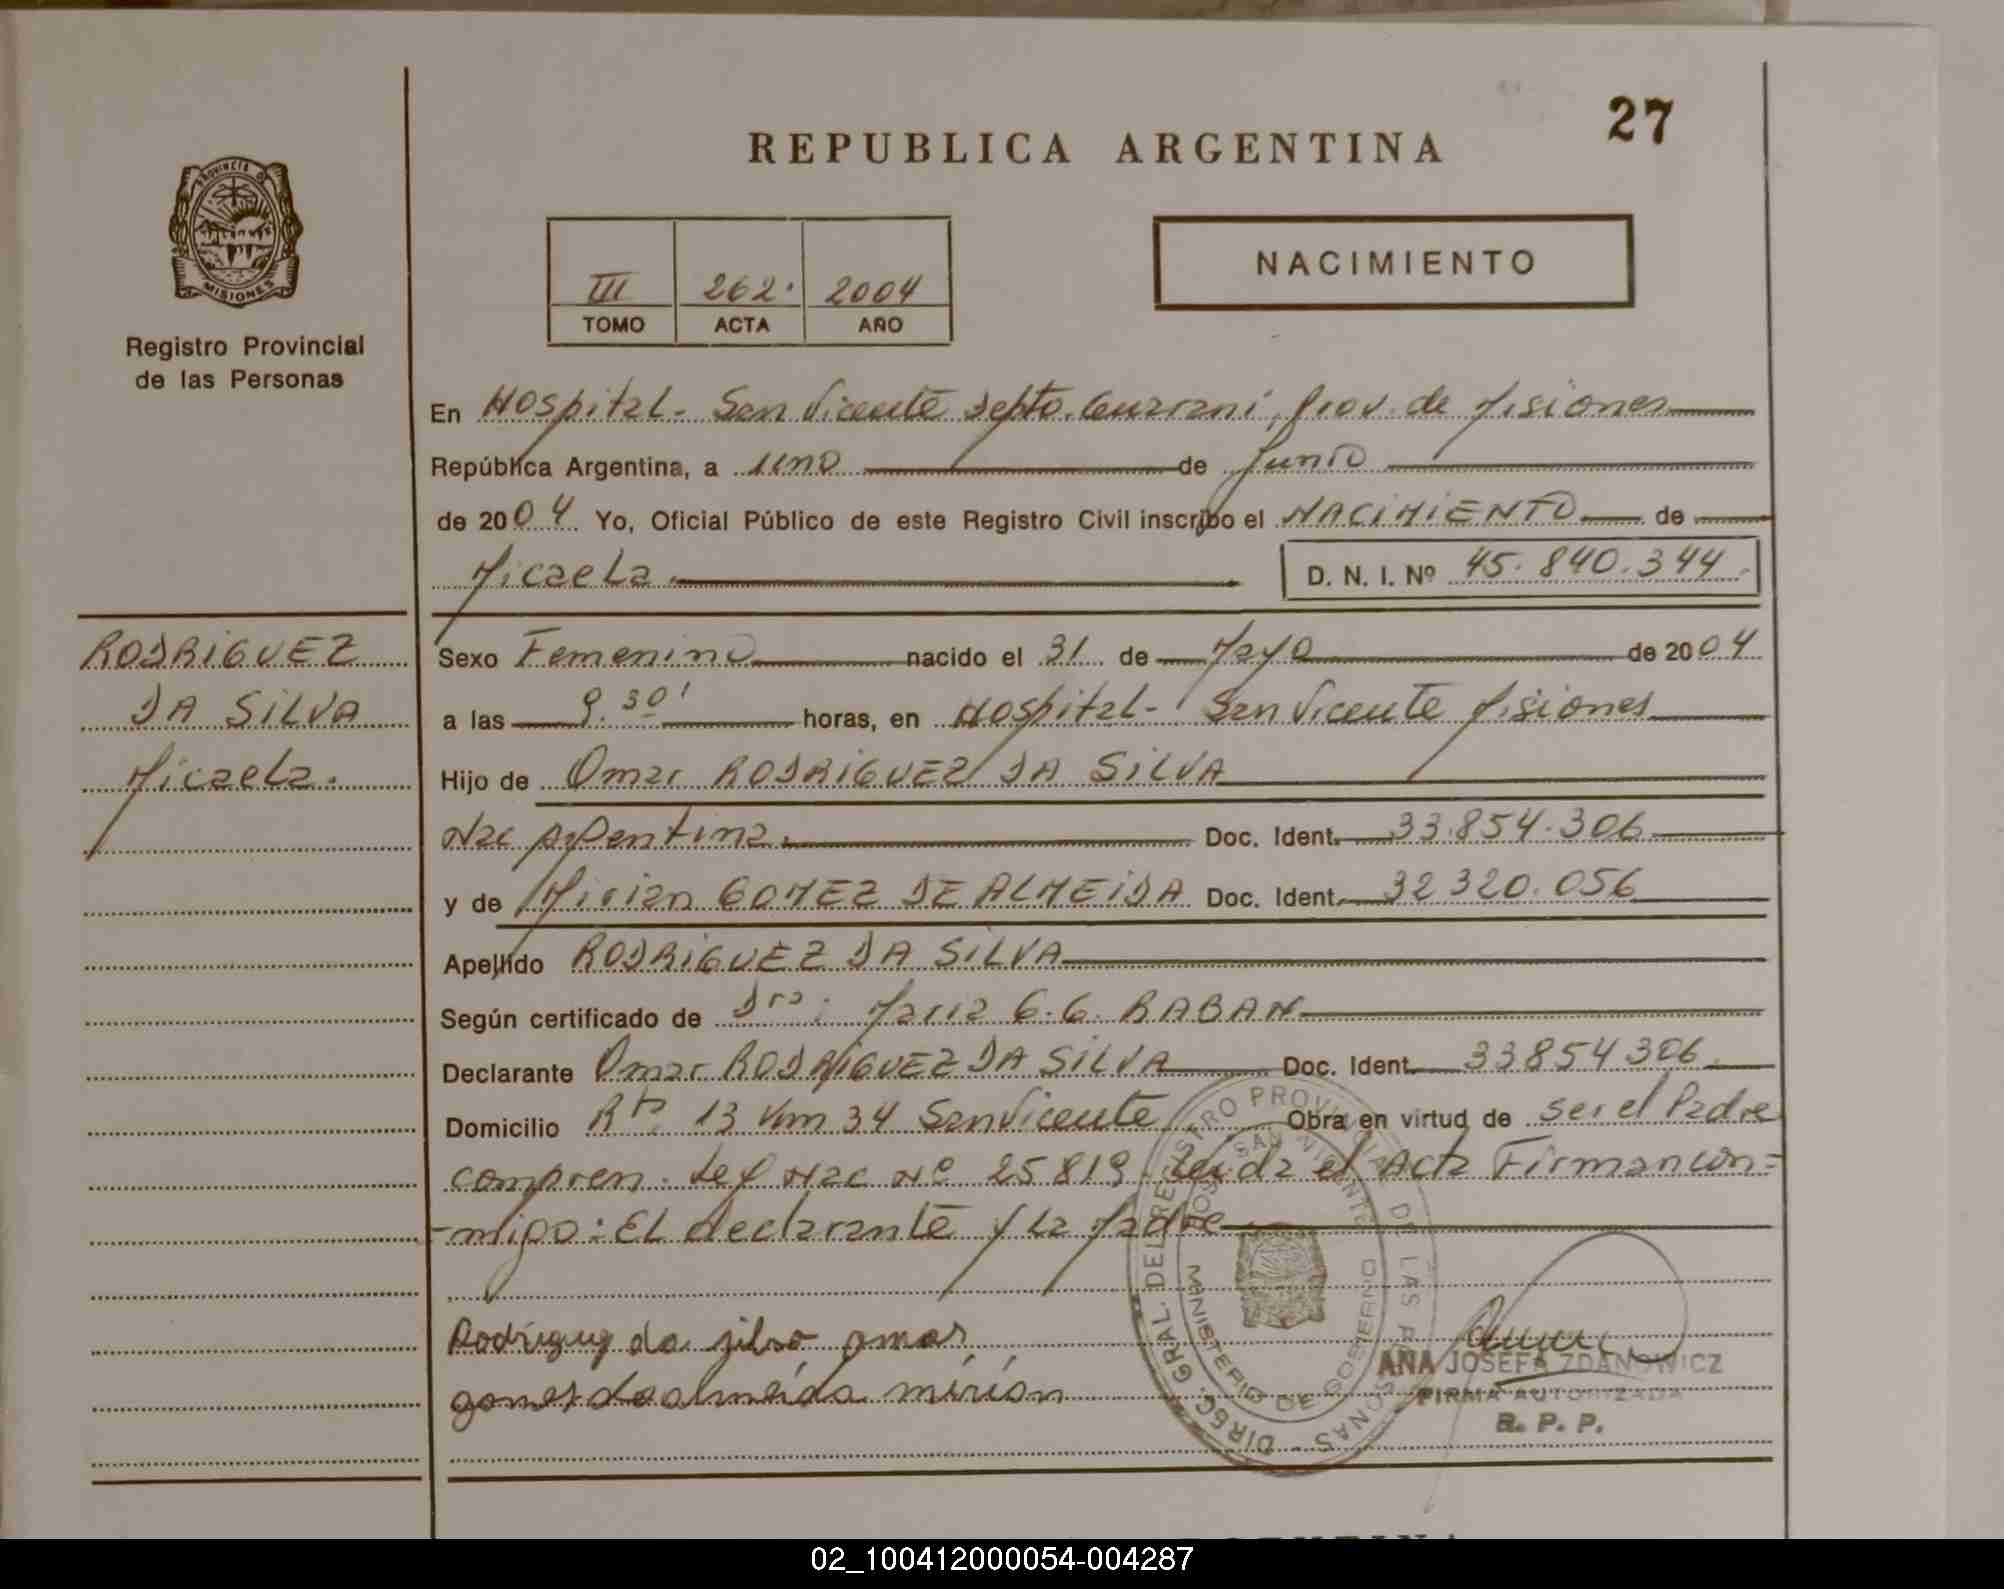 27
REPUBLICA ARGENTINA
PROVINCIA DE
MISIONES
Registro Provincial
de las Personas
III 262. 2004
TOMO ACTA AÑO
NACIMIENTO
En Hospital - San Vicente Depto. Guarani, Prov. de Misiones
República Argentina, a uno de Junio
de 2004 Yo, Oficial Público de este Registro Civil inscribo el NACIMIENTO de
Micaela D. N. I. Nº 45.840.344.
RODRIGUEZ
DA SILVA
Micaela.
Sexo Femenino nacido el 31 de Mayo de 2004
a las 9.30' horas, en Hospital - San Vicente Misiones
Hijo de Omar RODRIGUEZ DA SILVA
Nac Argentina. Doc. Ident. 33.854.306
y de Mirian GOMEZ DE ALMEIDA Doc. Ident. 32 320.056
Apellido RODRIGUEZ DA SILVA
Según certificado de Dra: Maria G.G. RABAN
Declarante Omar RODRIGUEZ DA SILVA Doc. Ident. 33854306.
Domicilio Rta. 13 Km 34 San Vicente Obra en virtud de ser el Padre
compren. def Nac Nº 25819. Leida el Acta Firman con=
-migo: El declarante y La Madre
Rodriguez da silva omar
gomes de almeida mirian
DIREC. GRAL. DEL REGISTRO PROVINCIAL DE LAS PERSONAS
MINISTERIO DE GOBIERNO
SAN VICENTE
ANA JOSEFA ZDANOWICZ
FIRMA AUTORIZADA
R. P. P.
02_100412000054-004287